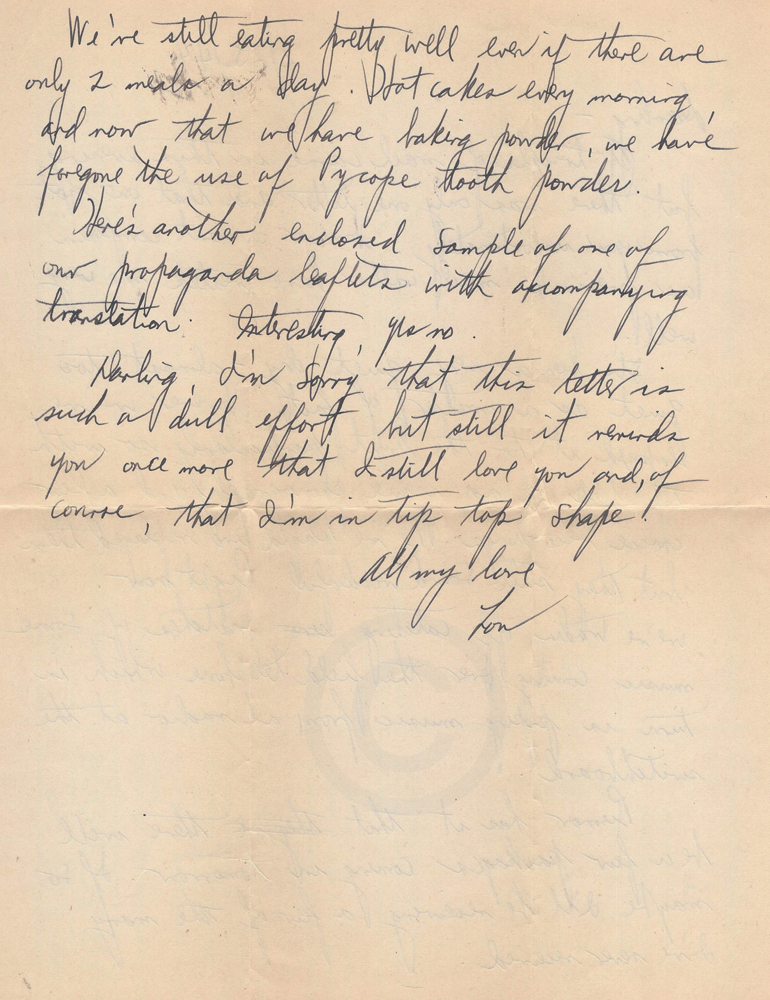 We're still eating pretty well even if there are
only 2 meals a day. Hot cakes every morning
and now that we have baking powder, we have
foregone the use of Pycope tooth powder.
Here's another enclosed sample of one of
our propaganda leaflets with accompanying
translation. Interesting, yes no.
Darling, I'm sorry that this letter is
such a dull effort but still it reminds
you once more that I still love you and, of
course, that I'm in tip top shape.
All my love
Lou